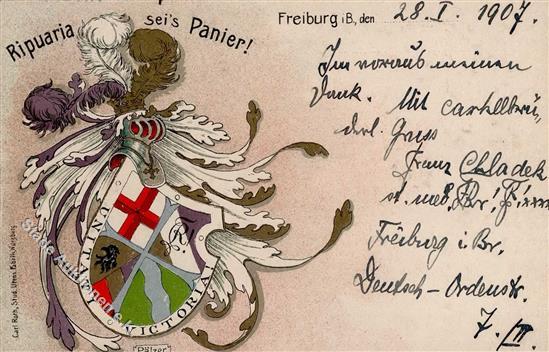 Ripuaria sei's Panier!
Freiburg i.B., den 28. I. 1907.
Im voraus meinen
Dank. Mit cartellbrü,
derl. Gruss
Franz Chladek
st. med. Br!
Freiburg i. Br.
Deutsch-Ordenstr.
7./III
UNITATE VICTORIA
Carl Roth, Stud. Uten. Fabrik, Würzburg
"Pälzer"